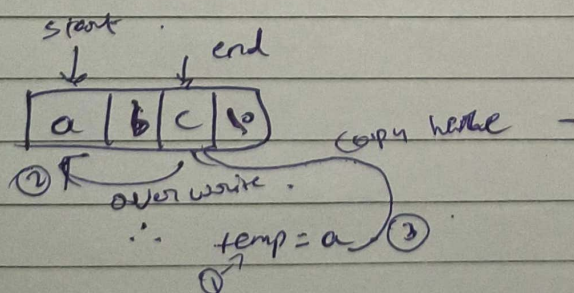 start
end
a b c \0
copy here
② overwrite.
∴ temp = a ③
①